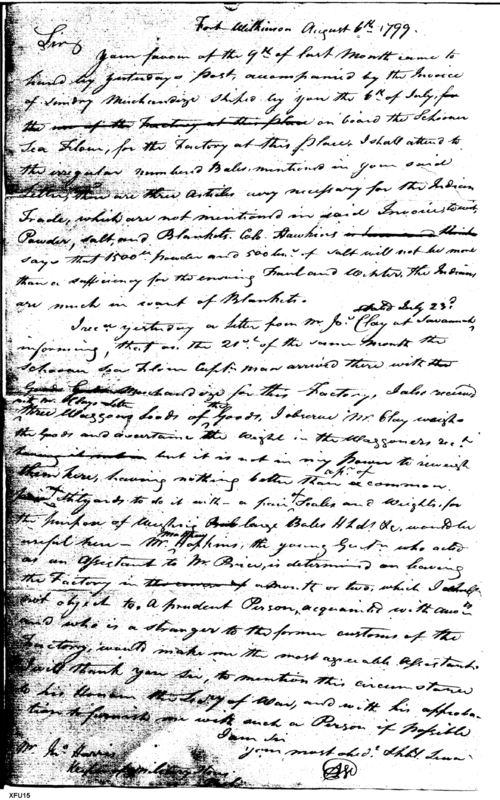 Fort Wilkinson August 6th 1799.
Sir
Your favour of the 9th of last Month came to
hand by yesterdays Post, accompanied by the Invoice
of Sundry Merchandize ship'd by you the 6th of July, for
the on board the Schooner
Sea Flower, for the Factory at this place, I shall attend to
the irregular numbered Bales mentioned in your said
letter, there are three Articles very necessary for the Indian
Trade, which are not mentioned in said Invoice,
Powder, Salt and Blankets. Col. Hawkins
says that 1500 lbs powder and 500 of Salt will not be more
than a sufficiency for the ensuing Faul and Winter. The Indians
are much in want of Blankets.
dated July 23d
I yesterday a letter from Mr. Jos. Clay at Savannah
informing, that on the 20th of the same Month the
Schooner Sea Flower Capt. arrived there with
Merchandize for this Factory, I also received
three Waggons Loads of the Goods, I observe Mr. Clay weighs
the Goods and ascertains the weight in the Waggoners
but it is not in my power to reweigh
them here, having nothing better than a common
Stilyards to do it with a pair of Scales and Weights for
the purpose of weighing large Bales Hhds &c, would be
useful here — Mr. Hopkins, the young Gent. who acted
as an Assistant to Mr. Price, is determined on leaving
the Factory in a Month or two, which I shall
not object to. A prudent Person, acquainted with
and who is a stranger to the former customs of the
Factory, would make me the most agreeable Assistant.
I will thank you Sir, to mention this circumstance
to his the Secy of War, and with his approba-
tion to furnish me with such a Person if possible
I am Sir
your most obedt. Hble. Servt.
Mr. Jno. Harris
Keeper of Military Stores
XFU15